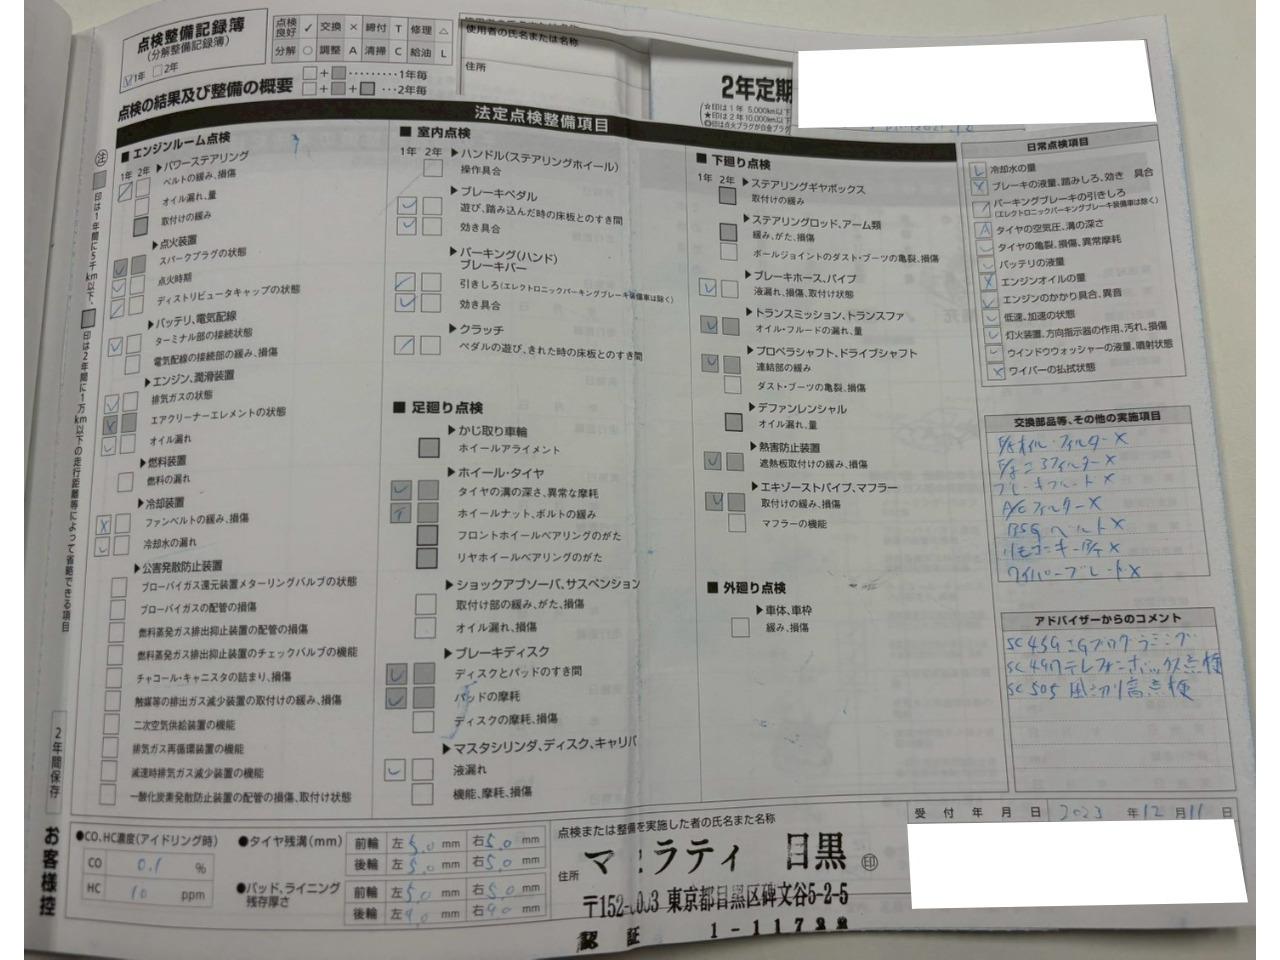 点検整備記録簿
(分解整備記録簿)
1年 2年
点検良好 ✓ 交換 × 締付 T 修理 △
分解 ○ 調整 A 清掃 C 給油 L
点検の結果及び整備の概要
□+□………1年毎
□+□+□…2年毎
使用者の氏名または名称
住所
2年定期
☆印は1年 5,000km以下
★印は2年10,000km以下
◎印は点火プラグが白金プラグ
法定点検整備項目
注 印は1年間に5千km以下、 印は2年間に1万km以下の走行距離等によって省略できる項目
■ エンジンルーム点検
1年 2年
▶パワーステアリング
ベルトの緩み、損傷
オイル漏れ、量
取付けの緩み
▶点火装置
スパークプラグの状態
点火時期
ディストリビュータキャップの状態
▶バッテリ、電気配線
ターミナル部の接続状態
電気配線の接続部の緩み、損傷
▶エンジン、潤滑装置
排気ガスの状態
エアクリーナーエレメントの状態
オイル漏れ
▶燃料装置
燃料の漏れ
▶冷却装置
ファンベルトの緩み、損傷
冷却水の漏れ
▶公害発散防止装置
ブローバイガス還元装置メターリングバルブの状態
ブローバイガスの配管の損傷
燃料蒸発ガス排出抑止装置の配管の損傷
燃料蒸発ガス排出抑止装置のチェックバルブの機能
チャコール・キャニスタの詰まり、損傷
触媒等の排出ガス減少装置の取付けの緩み、損傷
二次空気供給装置の機能
排気ガス再循環装置の機能
減速時排気ガス減少装置の機能
一酸化炭素発散防止装置の配管の損傷、取付け状態
■ 室内点検
1年 2年
▶ハンドル(ステアリングホイール)
操作具合
▶ブレーキペダル
遊び、踏み込んだ時の床板とのすき間
効き具合
▶パーキング(ハンド)
ブレーキバー
引きしろ(エレクトロニックパーキングブレーキ装備車は除く)
効き具合
▶クラッチ
ペダルの遊び、きれた時の床板とのすき間
■ 足廻り点検
▶かじ取り車輪
ホイールアライメント
▶ホイール・タイヤ
タイヤの溝の深さ、異常な摩耗
ホイールナット、ボルトの緩み
フロントホイールベアリングのがた
リヤホイールベアリングのがた
▶ショックアブソーバ、サスペンション
取付け部の緩み、がた、損傷
オイル漏れ、損傷
▶ブレーキディスク
ディスクとパッドのすき間
パッドの摩耗
ディスクの摩耗、損傷
▶マスタシリンダ、ディスク、キャリパ
液漏れ
機能、摩耗、損傷
■ 下廻り点検
1年 2年
▶ステアリングギヤボックス
取付けの緩み
▶ステアリングロッド、アーム類
緩み、がた、損傷
ボールジョイントのダスト・ブーツの亀裂、損傷
▶ブレーキホース、パイプ
液漏れ、損傷、取付け状態
▶トランスミッション、トランスファ
オイル・フルードの漏れ、量
▶プロペラシャフト、ドライブシャフト
連結部の緩み
ダスト・ブーツの亀裂、損傷
▶デファンレンシャル
オイル漏れ、量
▶熱害防止装置
遮熱板取付けの緩み、損傷
▶エキゾーストパイプ、マフラー
取付けの緩み、損傷
マフラーの機能
■ 外廻り点検
▶車体、車枠
緩み、損傷
日常点検項目
冷却水の量
ブレーキの液量、踏みしろ、効き具合
パーキングブレーキの引きしろ
(エレクトロニックパーキングブレーキ装備車は除く)
タイヤの空気圧、溝の深さ
タイヤの亀裂、損傷、異常摩耗
バッテリの液量
エンジンオイルの量
エンジンのかかり具合、異音
低速、加速の状態
灯火装置、方向指示器の作用、汚れ、損傷
ウインドウウォッシャーの液量、噴射状態
ワイパーの払拭状態
交換部品等、その他の実施項目
オイル・フィルター×
フィルター×
ブレーキフルード×
A/Cフィルター×
BSGベルト×
リモコンキーB/T×
ワイパーブレード×
アドバイザーからのコメント
SC 459 エGプログラミング
SC 497 テレフォンボックス点検
SC 505 風切り音点検
2年間保存
お客様控
●CO、HC濃度(アイドリング時)
CO 0.1 %
HC 10 ppm
●タイヤ残溝(mm)
前輪 左 5.0 mm 右 5.0 mm
後輪 左 5.0 mm 右 5.0 mm
●パッド、ライニング残存厚さ
前輪 左 5.0 mm 右 5.0 mm
後輪 左 9.0 mm 右 9.0 mm
点検または整備を実施した者の氏名また名称
マ ラティ 目黒 ㊞
住所
〒152-0003 東京都目黒区碑文谷5-2-5
認 証 1-117
受付年月日 2023 年 12 月 11 日